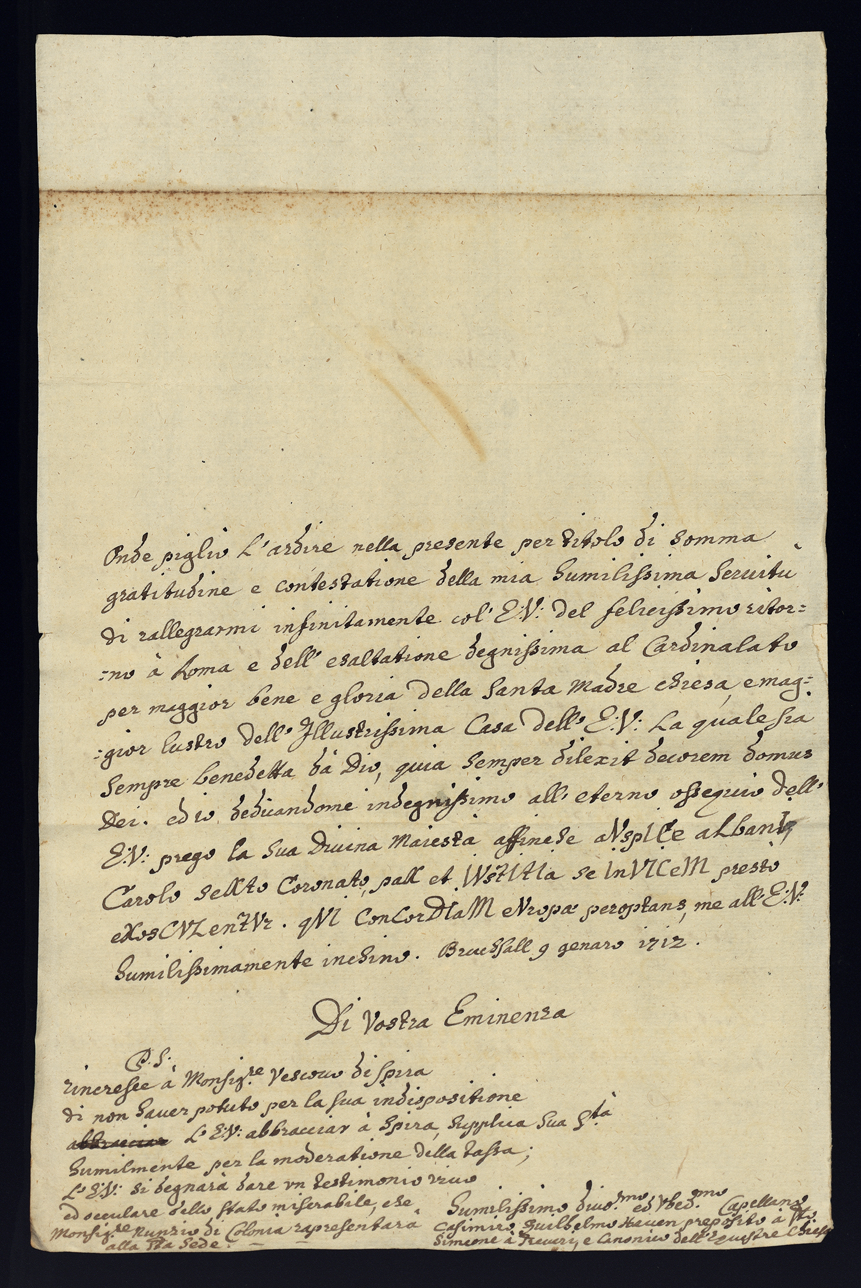 Onde piglio L'ardire nella presente per titolo di somma
gratitudine e contestatione della mia humilissima Servitù
di rallegrarmi infinitamente col' E:V: del felicissimo ritor=
=no à Roma e dell' esaltatione degnissima al Cardinalato
per maggior bene e gloria della Santa Madre chiesa, e mag=
=gior lustro dell' Illustrissima Casa dell' E:V: La quale sia
Sempre benedetta dà Dio, quia Semper dilexit decorem domus
Dei. ed io dedicandome indegnissimo all' eterno ossequio dell'
E:V: prego la Sua Divina Maiestà affinche aVspICe aLbanI,
Carolo seXto Coronato, paX et IVstItIa se InVICeM presto
eXosCVLentVr. qVI ConCorDIaM eVropæ peroptans, me all' E:V:
humilissimamente inchino. Bruchsall 9 genaro 1712.
Di Vostra Eminenza
P.S:
rincresce à Monsig:re Vescovo di Spira
di non haver potuto per la sua indispositione
L'E:V: abbracciar à Spira, Supplica Sua Stà
humilmente per la moderatione della tassa;
L'E:V: si degnarà dare vn testimonio vivo
ed occulare dello Stato miserabile, che
Monsig:re Nunzio di Colonia rapresentarà
alla Sta Sede.
humilissimo divo:mo ed Vbed:mo Capellano
Casimiro Guilhelmo Heuen preposito à Sto
Simeone à Treveri, e Canonico dell' Equestre Chiesa